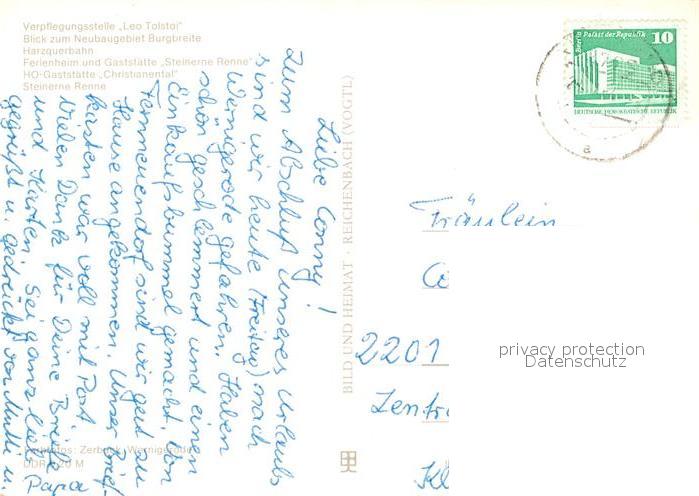 Verpflegungsstelle „Leo Tolstoi"
Blick zum Neubaugebiet Burgbreite
Harzquerbahn
Ferienheim und Gaststätte „Steinerne Renne"
HO-Gaststätte „Christianental"
Steinerne Renne
Liebe Conny!
Zum Abschluß unseres Urlaubs
sind wir heute (Freitag) nach
Wernigerode gefahren. Haben
schön geschlemmert und einen
Einkaufsbummel gemacht. Von
sind wir gut zu
Hause angekommen. Unser Brief-
kasten war voll mit Post.
Vielen Dank für Deine Briefe
und Karten. Sei ganz lieb
gegrüßt u. gedrückt von Mutti u.
Papa
Zerback, Wernigerode
DDR
M
BILD UND HEIMAT · REICHENBACH (VOGTL)
Berlin Palast der Republik
10
DEUTSCHE DEMOKRATISCHE REPUBLIK
a
Fräulein
Co
2201
Zentr
Kl
privacy protection
Datenschutz